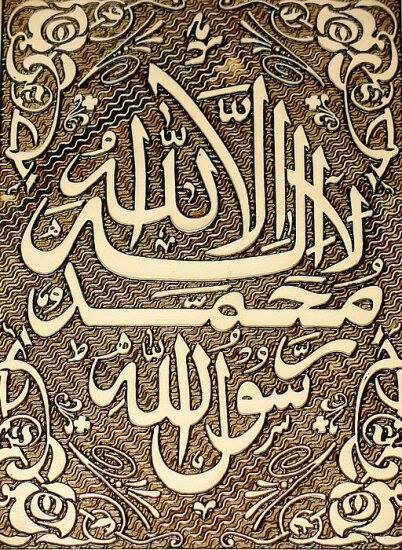 لا اله الا الله
محمد
رسول الله